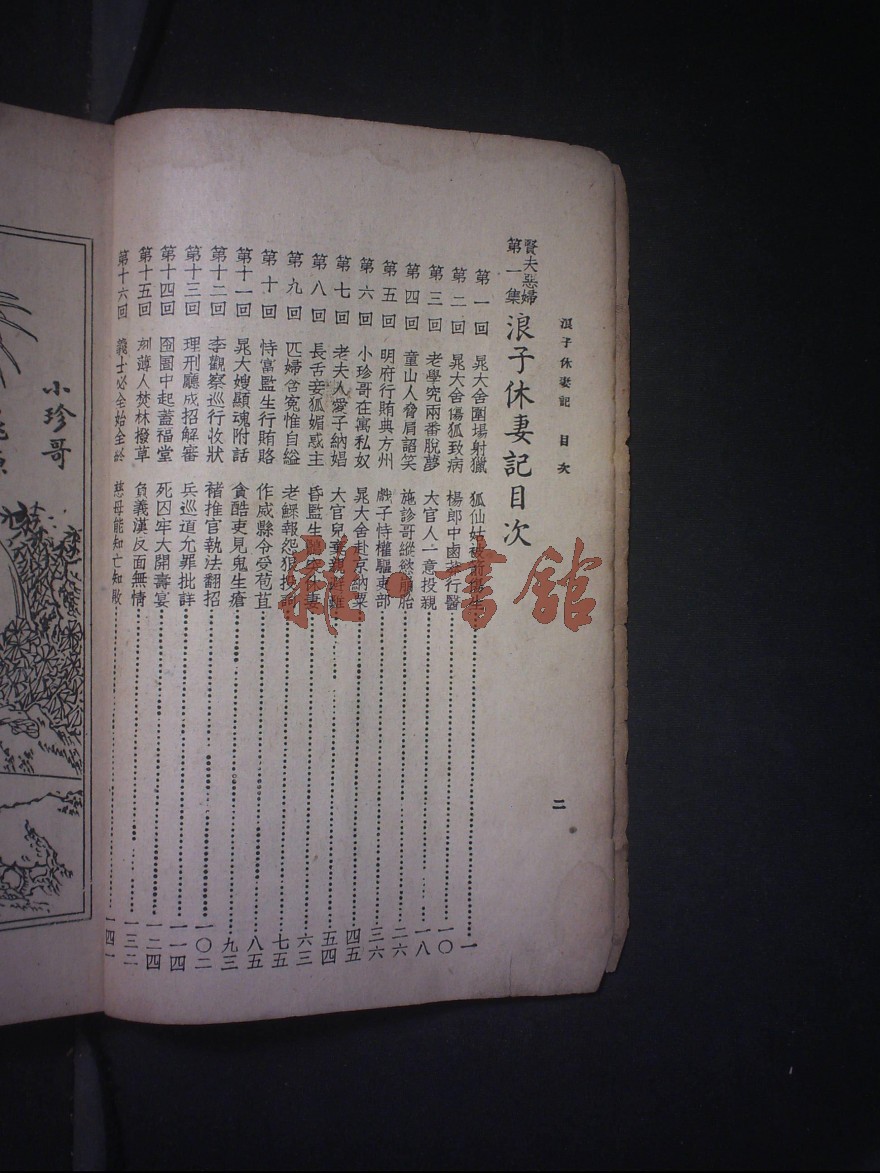 浪子休妻記 目次
二
賢夫惡婦
第一集
浪子休妻記目次
第一回 晁大舍圍場射獵 狐仙姑被箭傷生 一
第二回 晁大舍傷狐致病 楊郎中鹵莽行醫 一〇
第三回 老學究兩番脫夢 大官人一意投親 一八
第四回 童山人脅肩諂笑 施診哥縱慾崩胎 二六
第五回 明府行賄典方州 戲子恃權驅吏部 三六
第六回 小珍哥在寓私奴 晁大舍赴京納粟 四五
第七回 老夫人愛子納娼 大官兒棄親避難 五四
第八回 長舌妾狐媚惑主 昏監生休妻 六三
第九回 匹婦含冤惟自縊 老鰥報怨狠投詞 七五
第十回 恃富監生行賄賂 作威縣令受苞苴 八五
第十一回 晁大嫂顯魂附話 貪酷吏見鬼生瘡 九三
第十二回 李觀察巡行收狀 褚推官執法翻招 一〇二
第十三回 理刑廳成招解審 兵巡道允罪批詳 一一四
第十四回 囹圄中起蓋福堂 死囚牢大開壽宴 一二四
第十五回 刻薄人焚林撥草 負義漢反面無情 一三二
第十六回 義士必全始全終 慈母能知亡知敗 一四一
小珍哥
雜·書館